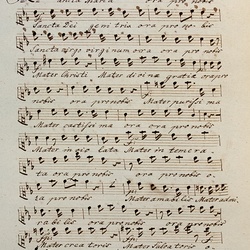 ancta Maria ora pro nobis
Sancta Dei genitrix ora pro nobis
Sancta virgo virginum ora ora pro nobis
Mater Christi Mater divina gratia ora pro
nobis ora pro nobis Mater purissima
Mater castissima ora ora pro nobis
Mater inviolata Mater intemera
ta ora pro nobis ora pro nobis o
ra pro nobis Mater amabilis Mater admi
rabilis ora pro nobis ora pro nobis
Mater creatoris Mater Salvatoris